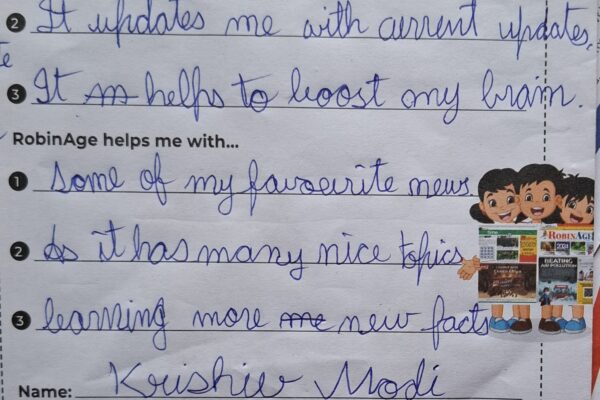 2 It updates me with current updates.
3 It helps to boost my brain.
RobinAge helps me with...
1 Some of my favourite news
2 As it has many nice topics
ROBINAGE
BEATING AIR POLLUTION
3 learning more new facts
Name: Krishiv Modi